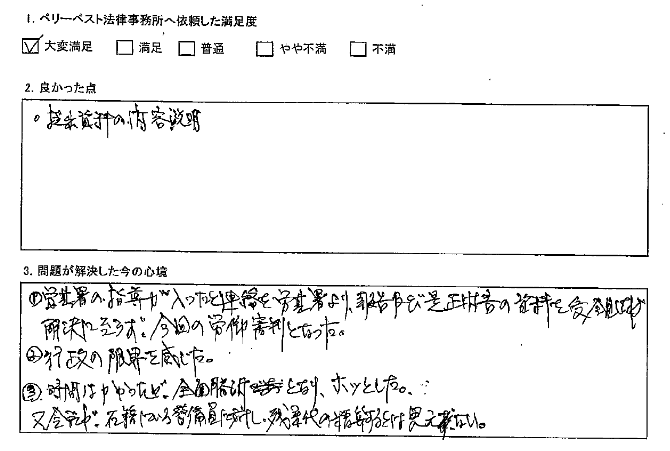 1. ベリーベスト法律事務所へ依頼した満足度
大変満足 満足 普通 やや不満 不満
2. 良かった点
。提出資料の内容説明
3. 問題が解決した今の心境
①労基署の指導が入ったと連絡を労基署より、報告及び是正勧告の資料を受
解決に至らず。今回の労働審判となった。
②行政の限界を感じた。
③時間はかかったが、全面勝訴となり、ホッとした。
又会社が、在籍している警備員に対し、残業代の精算するとは思えない。